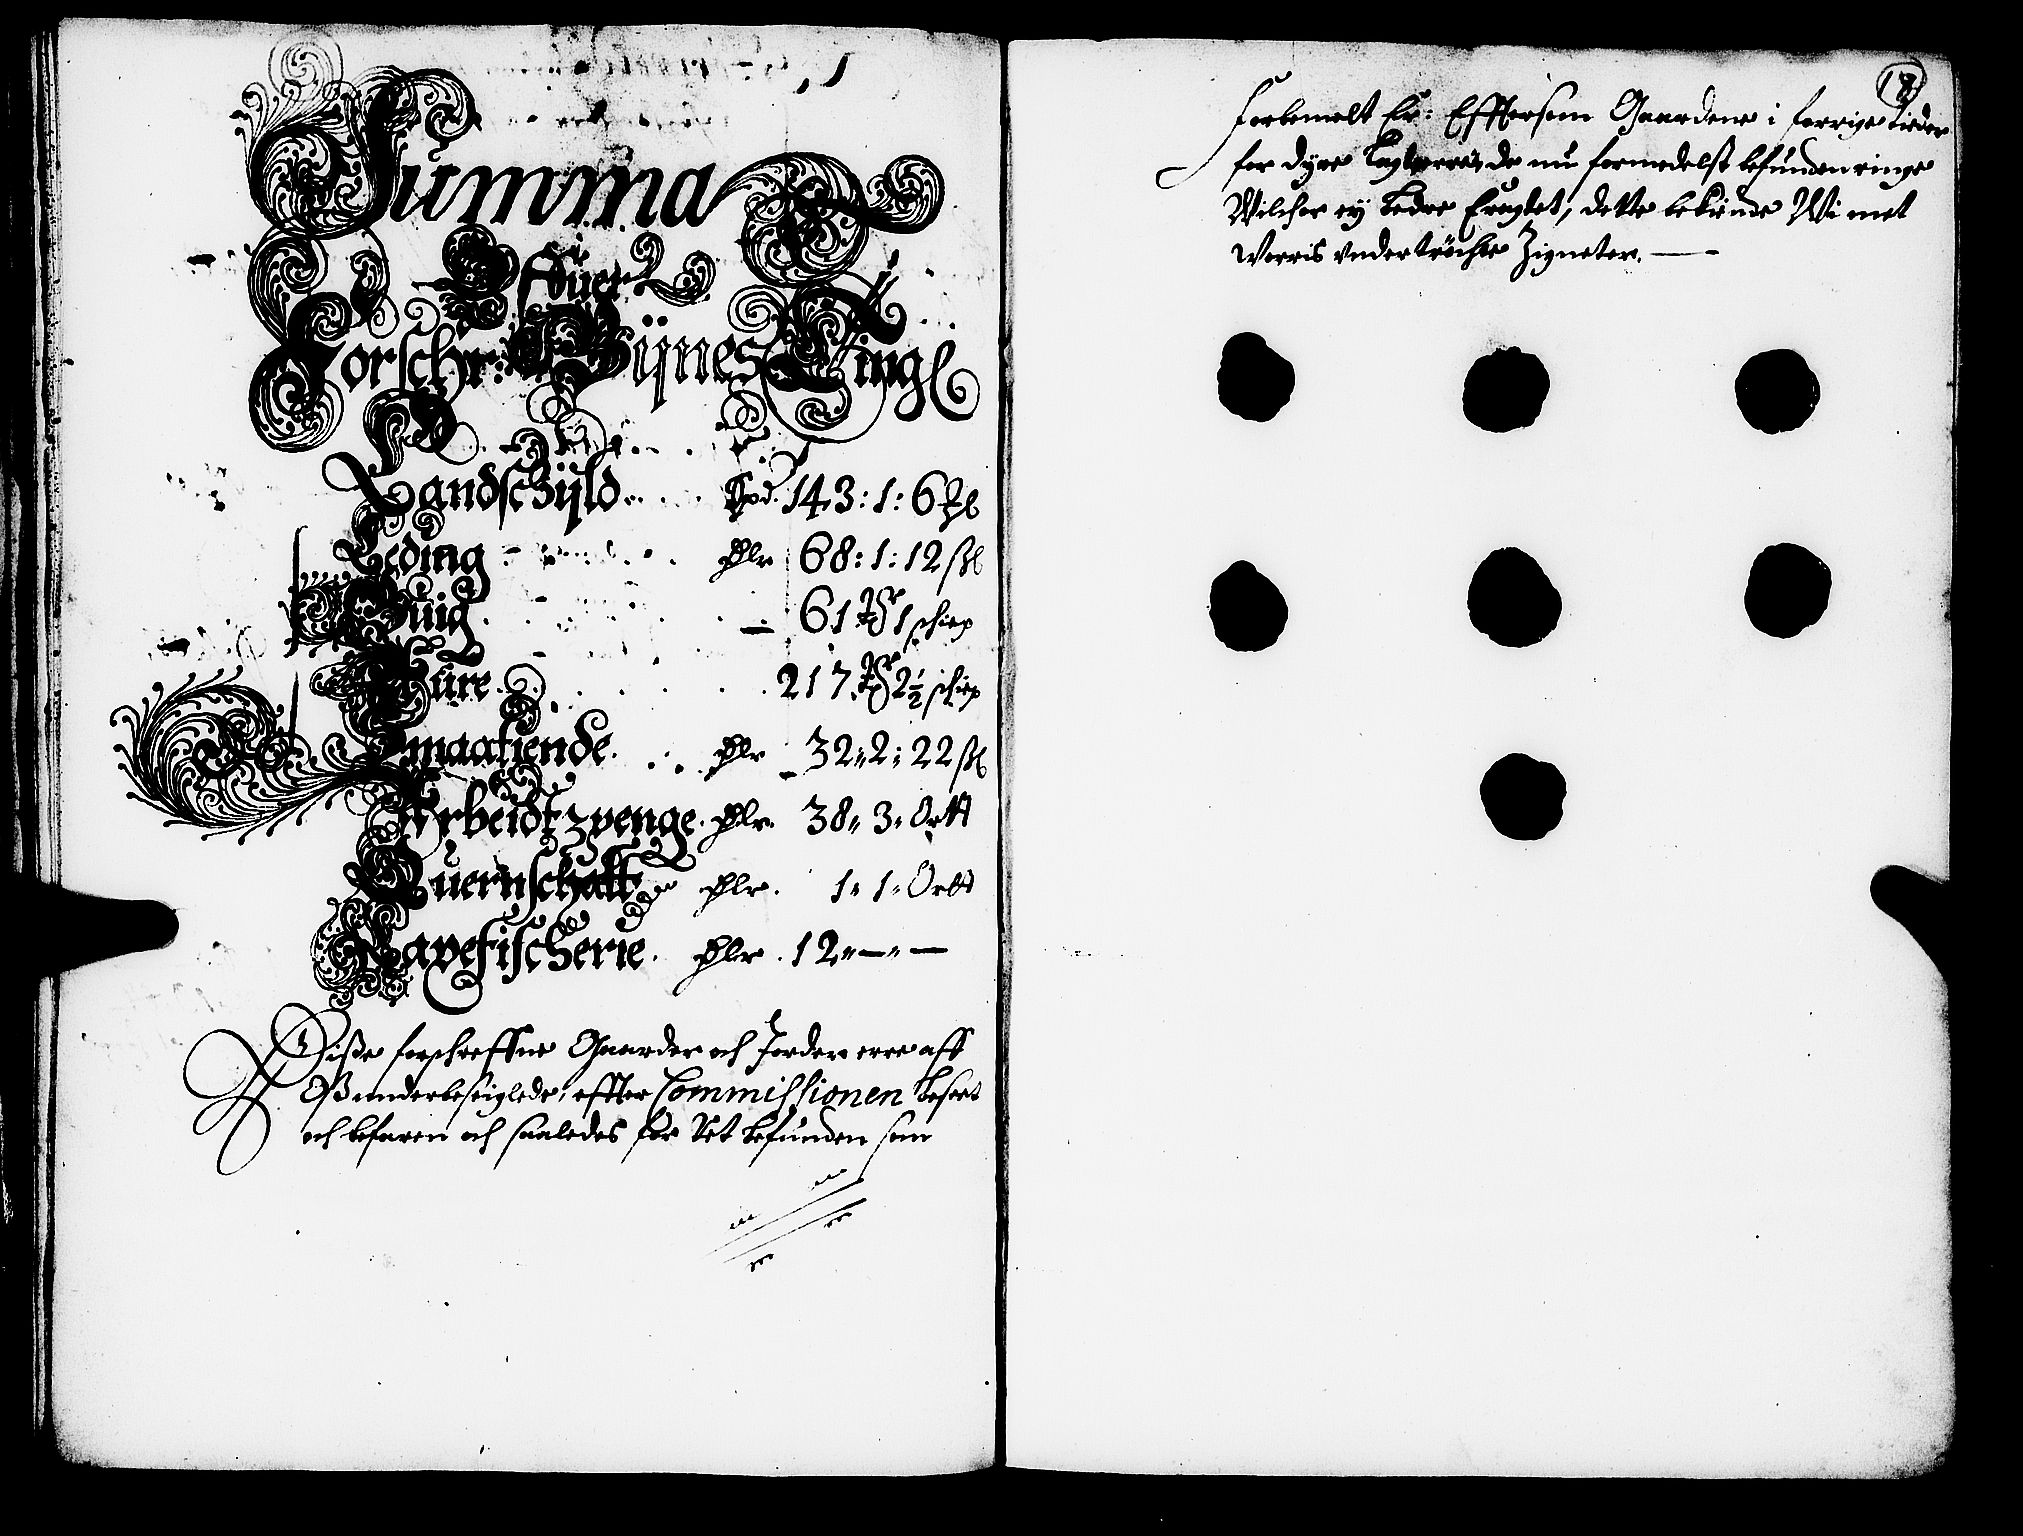 Summa
Offuer
Forschr: Bijnes Tingl
Landschÿld .... Spd. 143 : 1 : 6 
Leding ... Dlr 68 : 1 : 12 ßl
Huig ... 61 1 schiep
Hure ... 217 2½ schiep
Smaatiende . . Dlr 32 " 2 : 22 ßl
Arbeidtzpenge . Dlr. 38 " 3 " Ortt
Quernschatt Dlr. 1 " 1 " Ortt
Lavefischerie . Dlr . 12 " — " —
Disse forschreffne Gaarder och Jorder erre aff
Oß underbeseiglede, effter Commissionen beseet
och befaren och saaledes for Ret befunden som
18
forbemelt Er: Efftersom Gaardene i forrige tieder
for dyre Taxt verre, de nu formedelst befunden ringe
Wilchor ey bedre Eragtet, dette bekiende Wi met
Worris undertrÿchte Zigneter. —